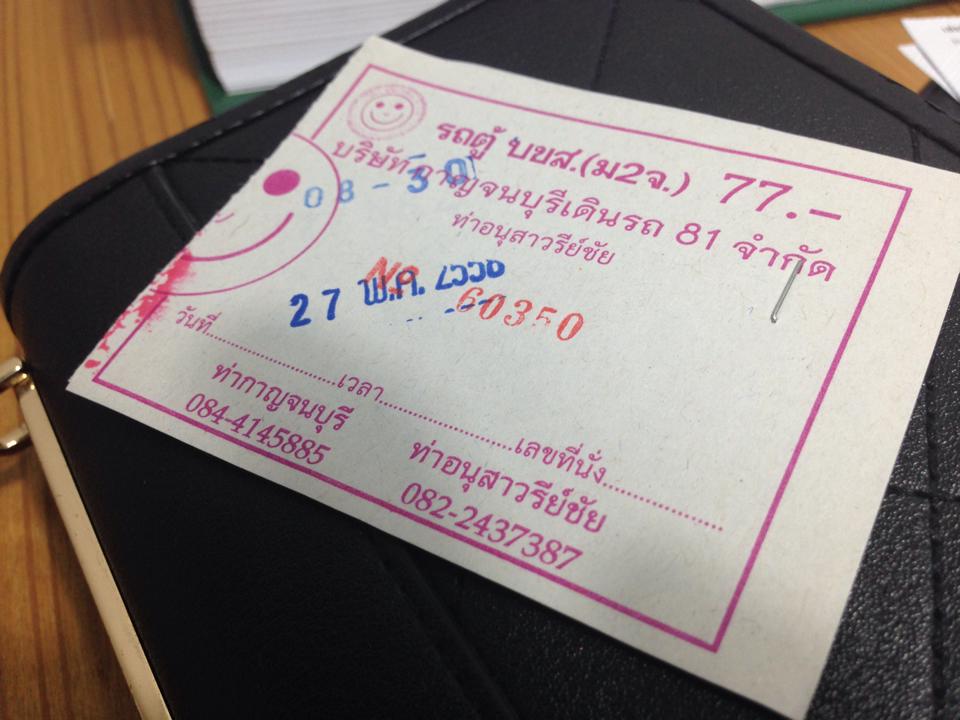 รถตู้ บขส.(ม2จ.) 77.-
บริษัท กาญจนบุรีเดินรถ 81 จำกัด
08-30
ท่าอนุสาวรีย์ชัย
27 พ.ค.
No 60350
วันที่....................เวลา....................เลขที่นั่ง....................
ท่ากาญจนบุรี
084-4145885
ท่าอนุสาวรีย์ชัย
082-2437387